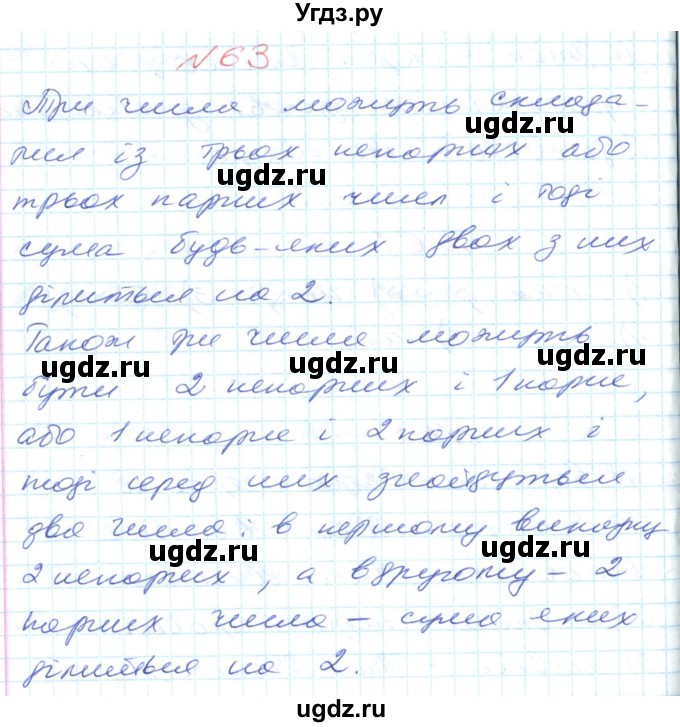 Угдз.ру
№ 63
Три числа можуть склада-
тися із трьох непарних або
ugdz.ru
ugdz.ru
трьох парних чисел і тоді
сума будь-яких двох з них
ділиться на 2.
ugdz.ru
Також три числа можуть
ugdz.ru
ugdz.ru
бути 2 непарних і 1 парне,
або 1 непарне і 2 парних і
тоді серед них знайдуться
два числа: в першому випадку
ugdz.ru
ugdz.ru
2 непарних, а в другому – 2
парних числа – сума яких
ділиться на 2.
ugdz.ru
ugdz.ru